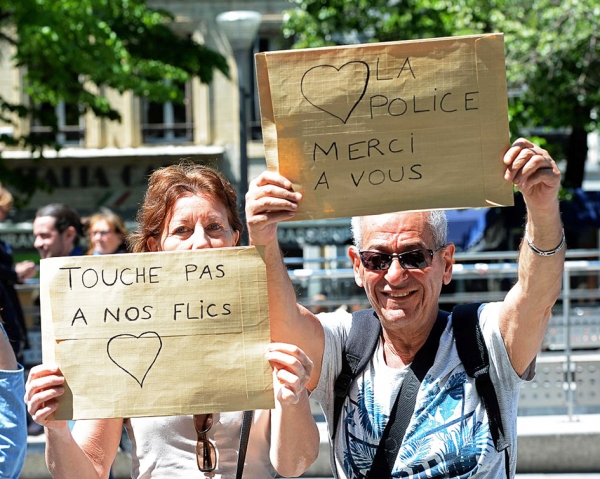 ♡ LA
POLICE
MERCI
A VOUS
TOUCHE PAS
A NOS FLICS
♡